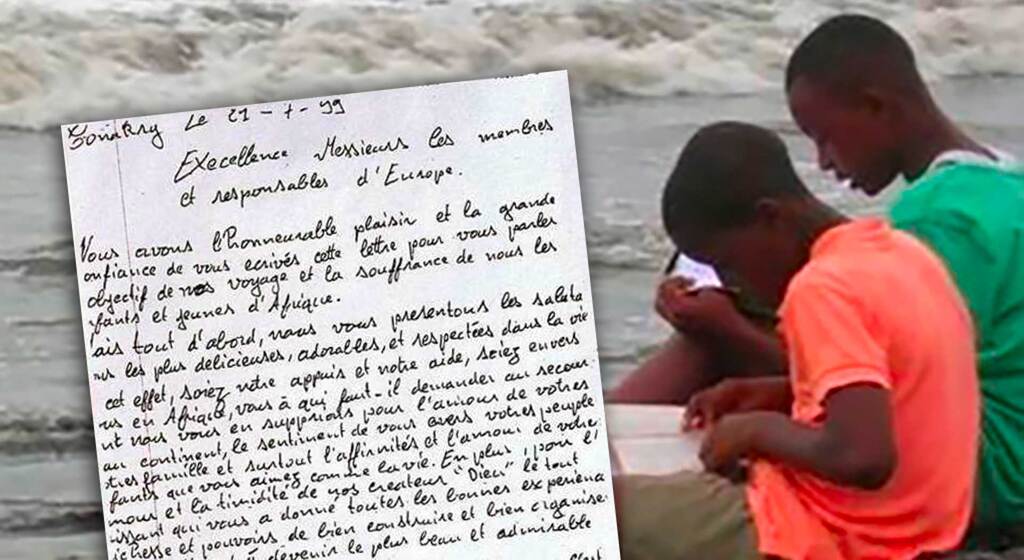 Conakry Le 21-7-99
Execellence Messieurs les membres
et responsables d'Europe.
Nous avons l'honneurable plaisir et la grande
onfiance de vous ecrivés cette lettre pour vous parler
objectif de nos voyage et la souffrance de nous les
fants et jeunes d'Afrique.
ais tout d'abord, nous vous presentons les saluta
ns les plus délicieuses, adorables, et respectées dans la vie
cet effet, soiez vôtre appuis et nôtre aide, soiez envers
us en Afrique, vous à qui faut-il demander au secour
nt nous vous en supplions pour l'amour de vôtres
au continent, le sentiment de vous avers vôtres peuple
tres famille et surtout l'affinités et l'amour de vôtre
fants que vous aimez comme la vie. En plus, pour l'
mour et la timidité de nos createur "Dieu" le tout
issant qui vous a donné toutes les bonnes experience
ichesse et pouvoirs de bien construire et bien organise
devenir le plus beau et admirable